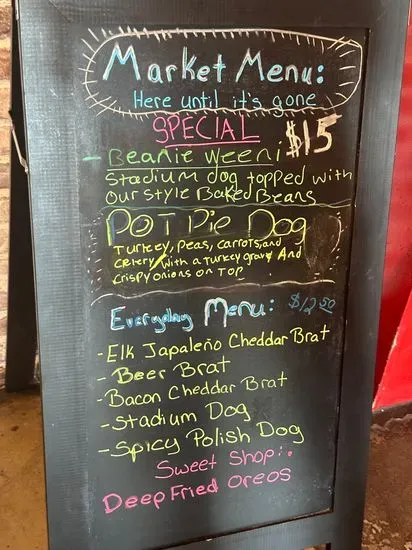 Market Menu:
Here until it's gone
SPECIAL
$15
- Beanie Weeni
Stadium dog topped with
our style Baked Beans
POT Pie Dog
Turkey, Peas, carrots, and
celery with a turkey gravy And
crispy onions on Top
Everyday Menu: $12.50
- Elk Japaleño Cheddar Brat
- Beer Brat
- Bacon Cheddar Brat
- Stadium Dog
- Spicy Polish Dog
Sweet Shop:
Deep Fried Oreos